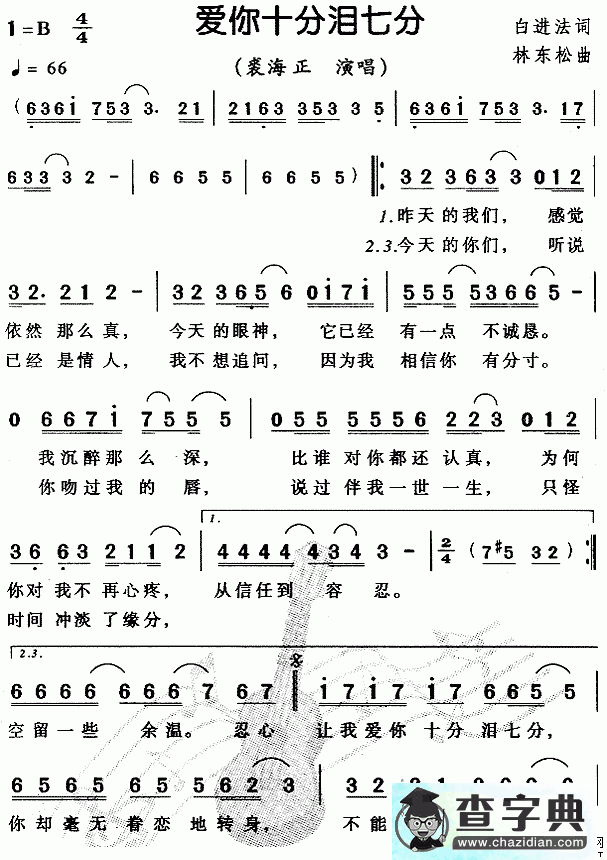 爱你十分泪七分
1=B 4/4
白进法词
♩=66
(裘海正 演唱)
林东松曲
(6 3 6 i 7 5 3 3. 2 1 | 2 1 6 3 3 5 3 3 5 | 6 3 6 i 7 5 3 3. 1 7 |
6 3 3 3 2 - | 6 6 5 5 | 6 6 5 5) |: 3 2 3 6 3 3 0 1 2
1.昨天的我们, 感觉
2.3.今天的你们, 听说
3 2. 2 1 2 - | 3 2 3 6 5 6 0 i 7 i | 5 5 5 5 3 6 6 5 - |
依然那么真, 今天的眼神, 它已经 有一点 不诚恳。
已经是情人, 我不想追问, 因为我 相信你 有分寸。
0 6 6 7 i 7 5 5 5 | 0 5 5 5 5 5 6 2 2 3 0 1 2
我沉醉那么深, 比谁对你都还认真, 为何
你吻过我的唇, 说过伴我一世一生, 只怪
1.
3 6 6 3 2 1 1 2 | 4 4 4 4 4 3 4 3 3 - | 2/4 (7 #5 3 2) :|
你对我不再心疼, 从信任到容忍。
时间冲淡了缘分,
2.3.
6 6 6 6 6 6 6 7 6 7 | i 7 i 7 i 7 6 6 5 5 |
空留一些余温。忍心 让我爱你十分泪七分,
6 5 6 5 6 5 6 5 6 2 2 3 |
你却毫无眷恋地转身, 不能
查字典
www.chazidian.com